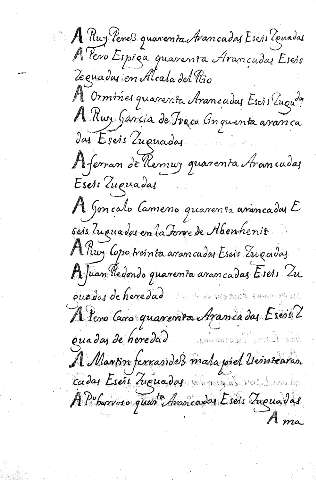 A Ruy Perez quarenta Arancadas Eseis Zuguadas
A Pero Espiga quarenta Arançadas Eseis
Zeguadas en Alcala del Rio
A Ormines quarenta Arançadas Eseis Zuguda
A Ruy Garcia de Treço Cinquenta aranca
das Eseis Zuguadas
A ferran de Remuy quarenta Arancadas
Eseis Zuguadas
A Gonçalo Cameno quarenta arancadas E
seis Zuguadas en la Torre de Abenhenit
A Ruy Copo treinta arancadas Eseis Zugadas
A Juan Redondo quarenta arancadas Eseis Zu
guadas de heredad
A Pero Caro quarenta Arancadas Eseis Z
guadas de heredad
A Martin ferrandez mala piel Ueinte aran
cadas Eseis Zuguadas
A Po barroso quarta Arancadas Eseis Zuguadas
A ma